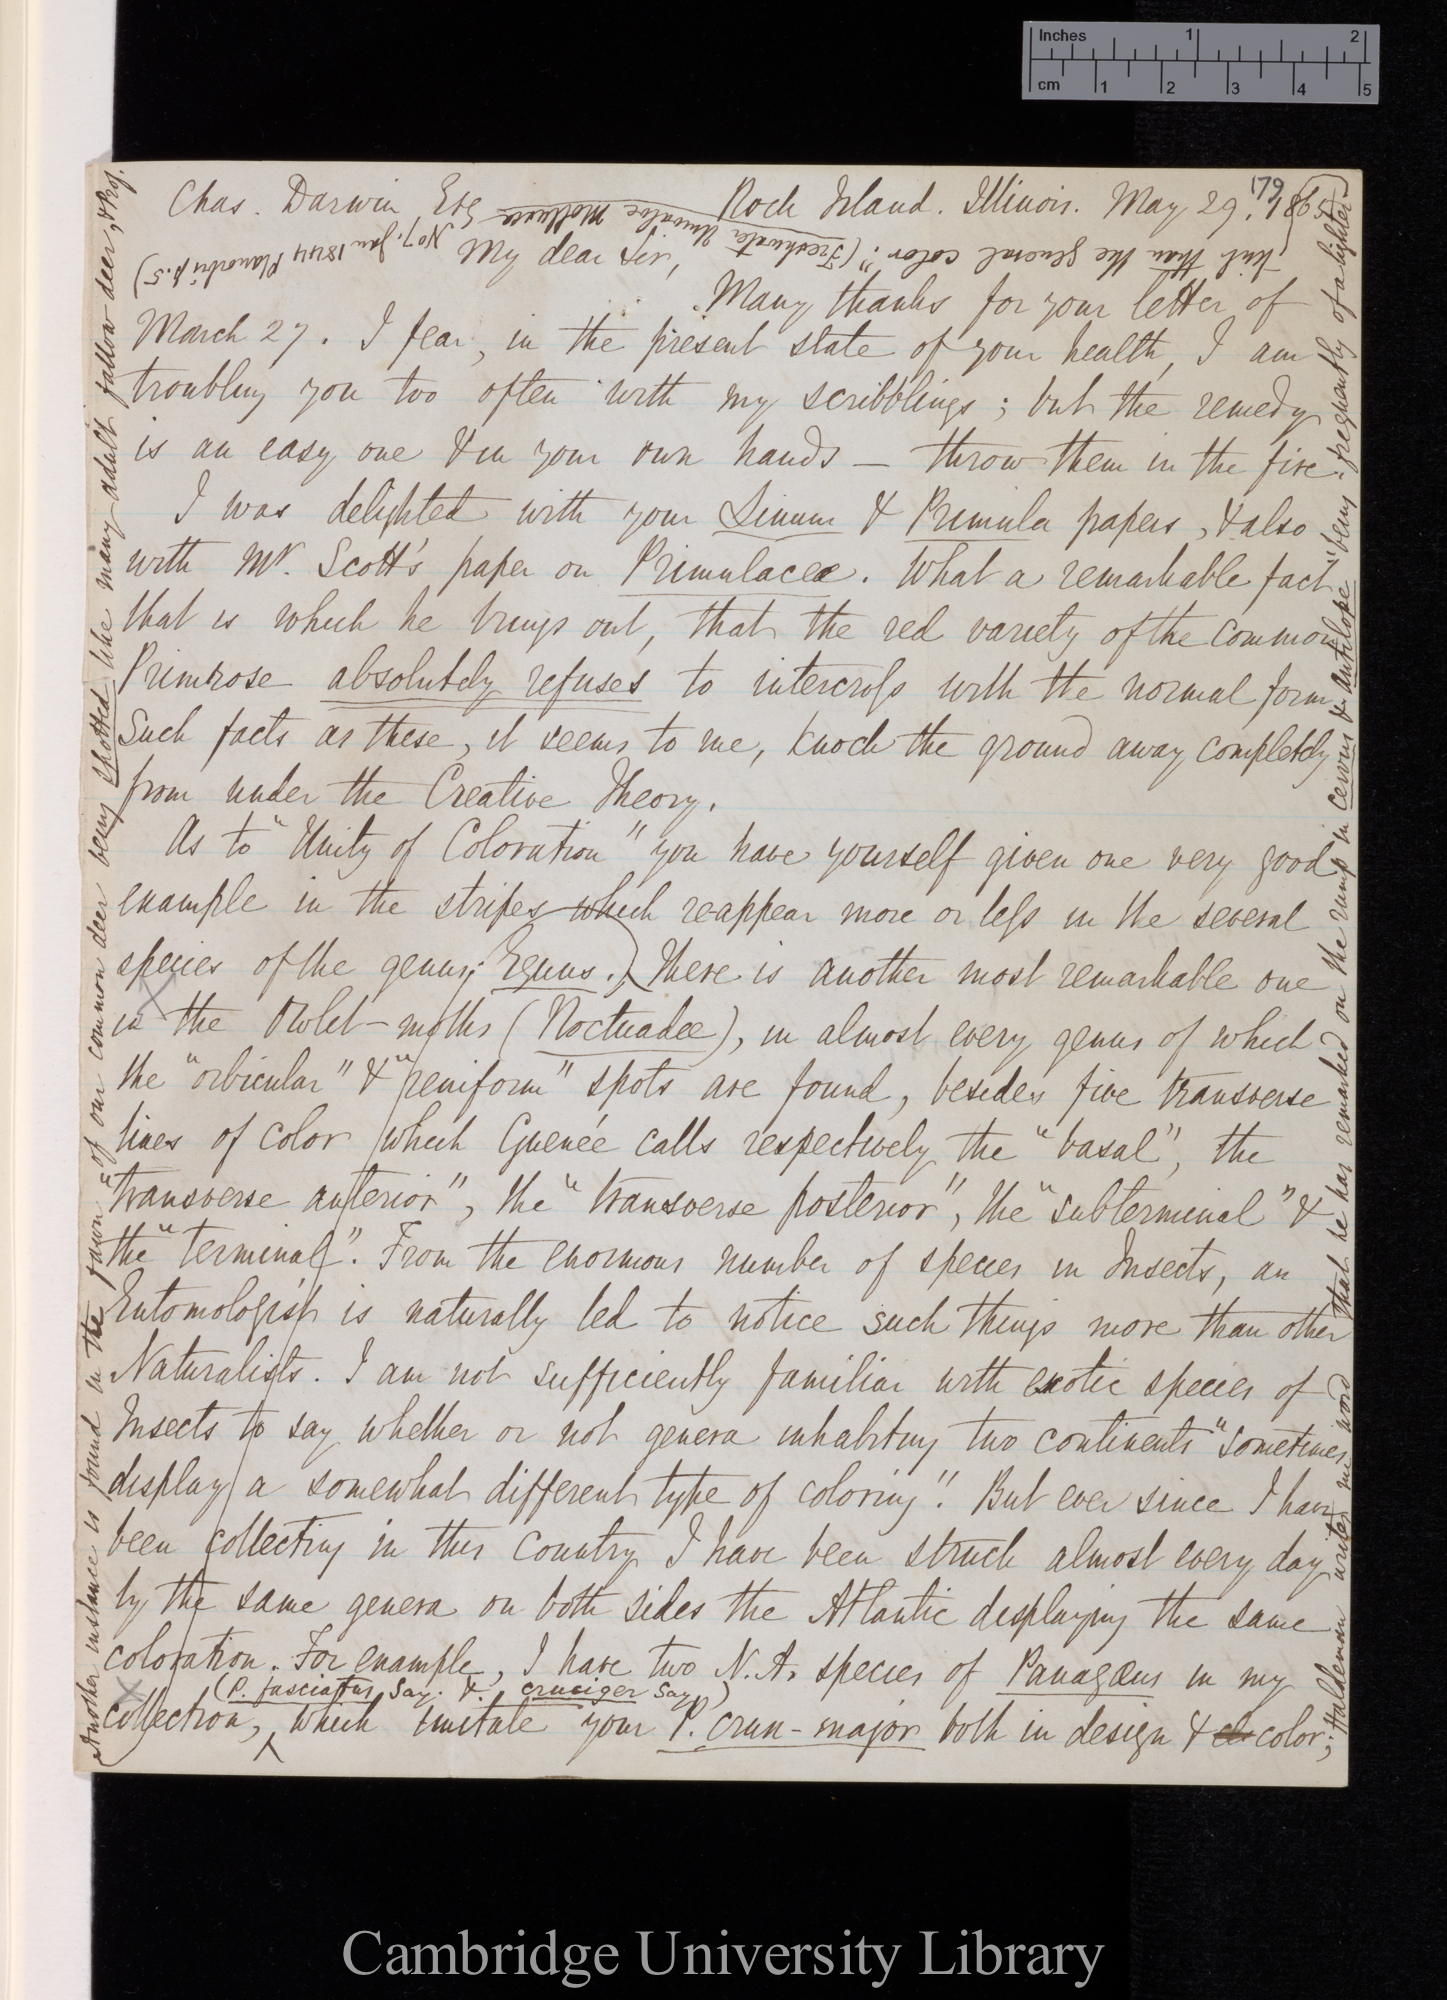 Inches 1 2
cm 1 2 3 4 5
179
Chas. Darwin, Esq Rock Island. Illinois. May 29. 1865
My dear Sir,
Many thanks for your letter of
March 27. I fear, in the present state of your health, I am
troubling you too often with my scribblings; but the remedy
is an easy one & in your own hands — throw them in the fire.
I was delighted with your Linum & Primula papers, & also
with Mr. Scott's paper on Primulaceæ. What a remarkable fact
that is which he brings out, that the red variety of the common
Primrose absolutely refuses to intercross with the normal form.
Such facts as these, it seems to me, knock the ground away completely
from under the Creative Theory.
As to "Unity of Coloration" you have yourself given one very good
example in the stripes which reappear more or less in the several
species of the genus Equus. There is another most remarkable one
in the Owlet-moths (Noctuadæ), in almost every genus of which
the "orbicular" & "reniform" spots are found, besides five transverse
lines of color which Guenée calls respectively the "basal", the
"transverse anterior", the "transverse posterior", the "subterminal" &
the "terminal". From the enormous number of species in Insects, an
Entomologist is naturally led to notice such things more than other
Naturalists. I am not sufficiently familiar with exotic species of
Insects to say whether or not genera inhabiting two continents "sometimes
display a somewhat different type of coloring". But ever since I have
been collecting in this Country I have been struck almost every day
by the same genera on both sides the Atlantic displaying the same
coloration. For example, I have two N.A. species of Panagæus in my
(P. fasciatus Say. & cruciger Say)
collection, which imitate your P. crux-major both in design & color;
Another instance is found in the fawn "of our common deer being spotted like many adult fallow deer, & Prof.
Haldeman writes me word that he has remarked on the rump in cervus & antilope "being frequently of a lighter
tint than the general color." (Freshwater Univalve Mollusca
No 7. Jan 1844 Planorbis p. 5)
Cambridge University Library